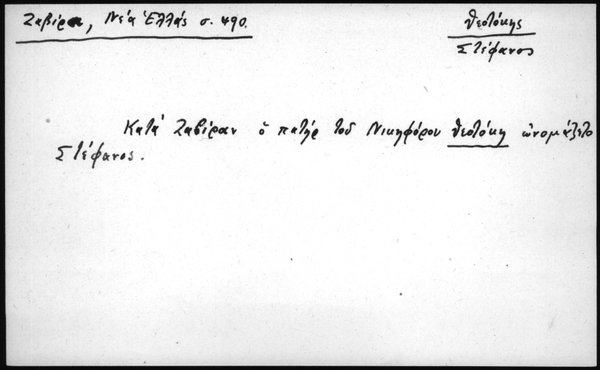 Ζαβίρα, Νέα Ἑλλάς σ. 490.
Θεοτόκης
Στέφανος
Κατά Ζαβίραν ὁ πατήρ τοῦ Νικηφόρου Θεοτόκη ὠνομάζετο
Στέφανος.